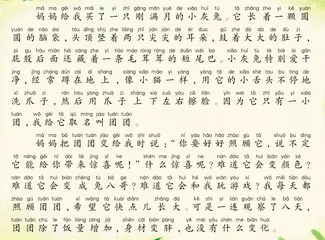 mā ma gěi wǒ mǎi le yì zhī gāng mǎn yuè de xiǎo huī tù tā zhǎng zhe yì kē yuán
妈妈给我买了一只刚满月的小灰兔。它长着一颗圆
yuán de nǎo dai tóu dǐng shù zhe liǎng zhī jiān jiān de ěr duo gǔ zhe dà dà de dù zi
圆的脑袋，头顶竖着两只尖尖的耳朵，鼓着大大的肚子
pì gu hòu miàn hái cáng zhe yì tiáo máo róng róng de duǎn wěi ba xiǎo huī tù tè bié ài gān
屁股后面还藏着一条毛茸茸的短尾巴。小灰兔特别爱干
jìng jīng cháng dūn zài dì shang xiàng xiǎo māo yí yàng yòng tā de xiǎo shé tou bù tíng de
净，经常蹲在地上，像小猫一样，用它的小舌头不停地
xǐ zhuǎ zi rán hòu yòng zhuǎ zi shàng xià zuǒ yòu cā liǎn yīn wèi tā zhǐ yǒu yì xiǎo
洗爪子，然后用爪子上下左右擦脸。因为它只有一小
tuán wǒ gěi tā qǔ míng jiào tuán tuán
团，我给它取名叫团团。
mā ma bǎ tuán tuán jiāo gěi wǒ shí shuō nǐ yào hǎo hǎo zhào gù tā shuō bu dìng
妈妈把团团交给我时说：“你要好好照顾它，说不定
tā néng gěi nǐ dài lái jīng xǐ ne shén me jīng xǐ ne nán dào tā huì biàn yán sè
它能给你带来惊喜呢！”什么惊喜呢？难道它会变颜色？
nán dào tā huì biàn chéng tù bā gē nán dào tā huì hé wǒ wán yóu xì wǒ měi tiān dōu
难道它会变成兔八哥？难道它会和我玩游戏？我每天都
zhào gù tuán tuán xī wàng tā kuài diǎn ér zhǎng dà kě shì yì lián guān chá le bā tiān
照顾团团，希望它快点儿长大。可是一连观察了八天，
tuán tuán chú le fàn liàng zēng jiā shēn cái biàn pàng yě méi yǒu shén me biàn huà
团团除了饭量增加，身材变胖，也没有什么变化。